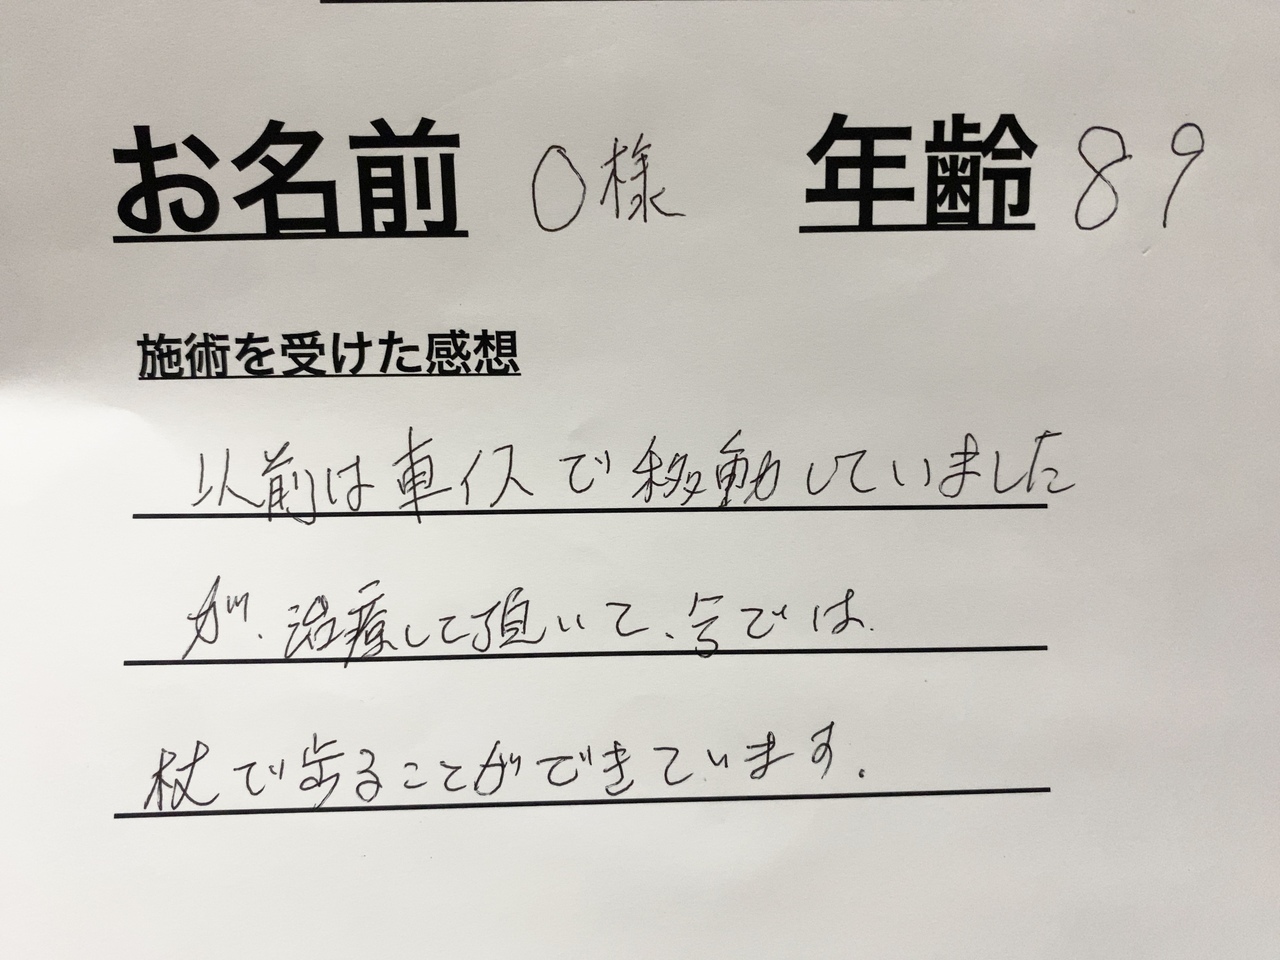 お名前 O様 年齢 89
施術を受けた感想
以前は車イスで移動していました
が、治療して頂いて、今では
杖で歩ることができています。